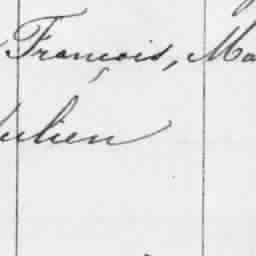 François, Ma
ulien